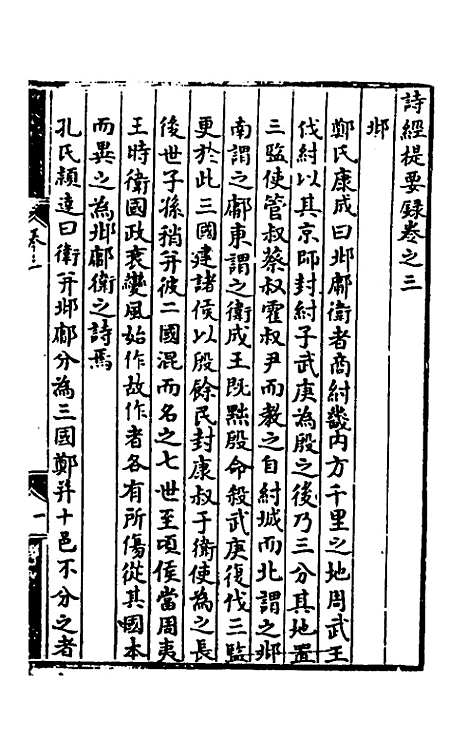 詩經提要錄卷之三
邶
鄭氏康成曰邶鄘衛者商紂畿內方千里之地周武王
伐紂以其京師封紂子武庚為殷之後乃三分其地置
三監使管叔蔡叔霍叔尹而教之自紂城而北謂之邶
南謂之鄘東謂之衛成王既黜殷命殺武庚復伐三監
更於此三國建諸侯以殷餘民封康叔于衛使為之長
後世子孫稍并彼二國混而名之七世至頃侯當周夷
王時衛國政衰變風始作故作者各有所傷從其國本
而異之為邶鄘衛之詩焉
孔氏穎達曰衛并邶鄘分為三國鄭并十邑不分之者
卷三
一